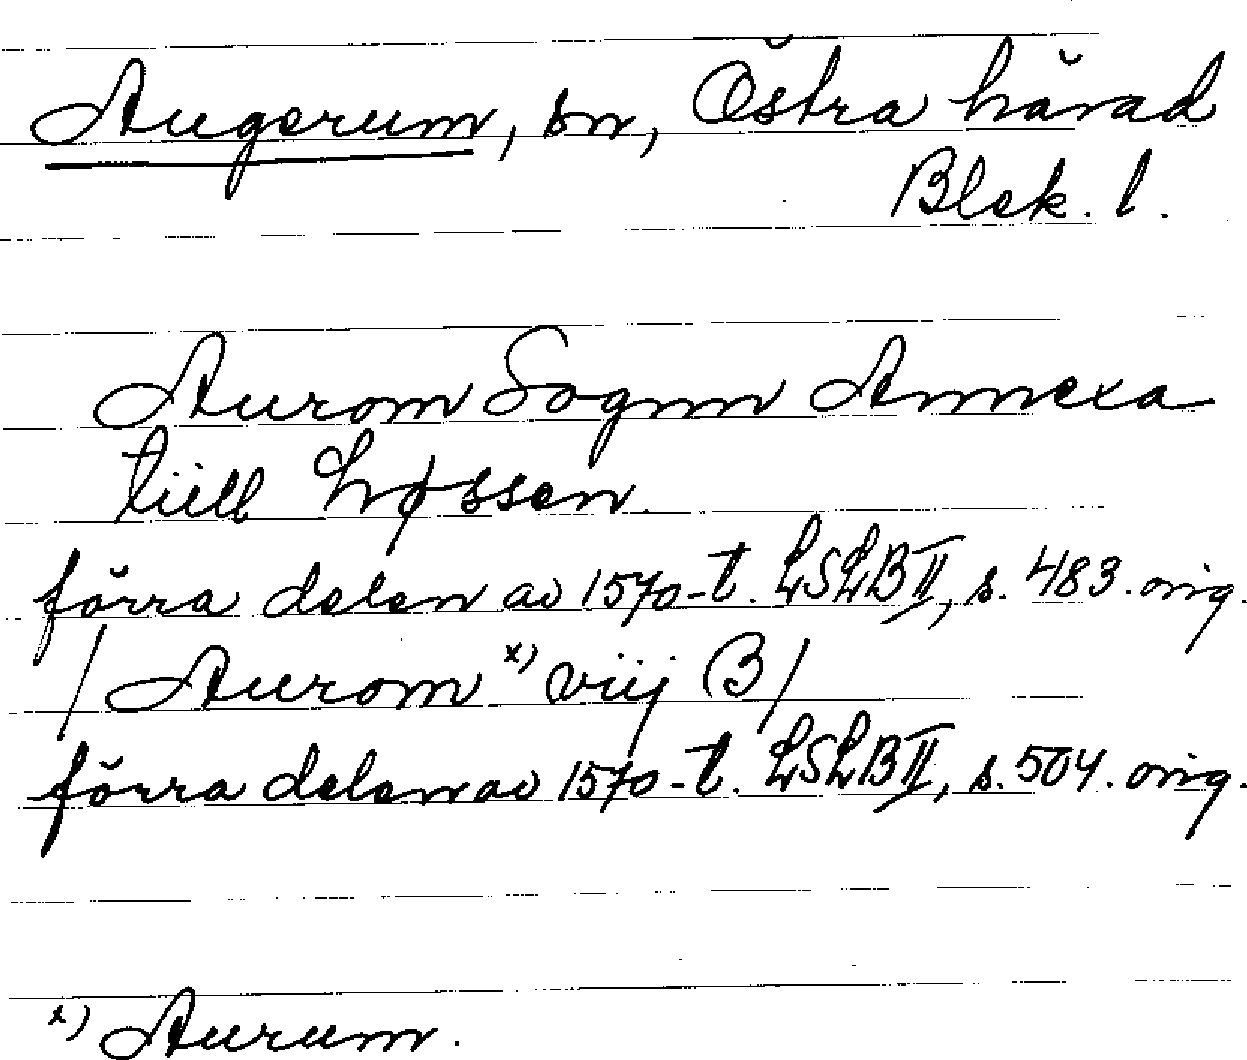 Augerum, sn, Östra härad
Blek. l.
Aurom Sognn Annexa
tiill Løssen.
förra delen av 1570-t. LSLB II, s. 483. orig.
/ Aurom x) viij B /
förra delen av 1570-t. LSLB II, s. 504. orig.
x) Aurum.